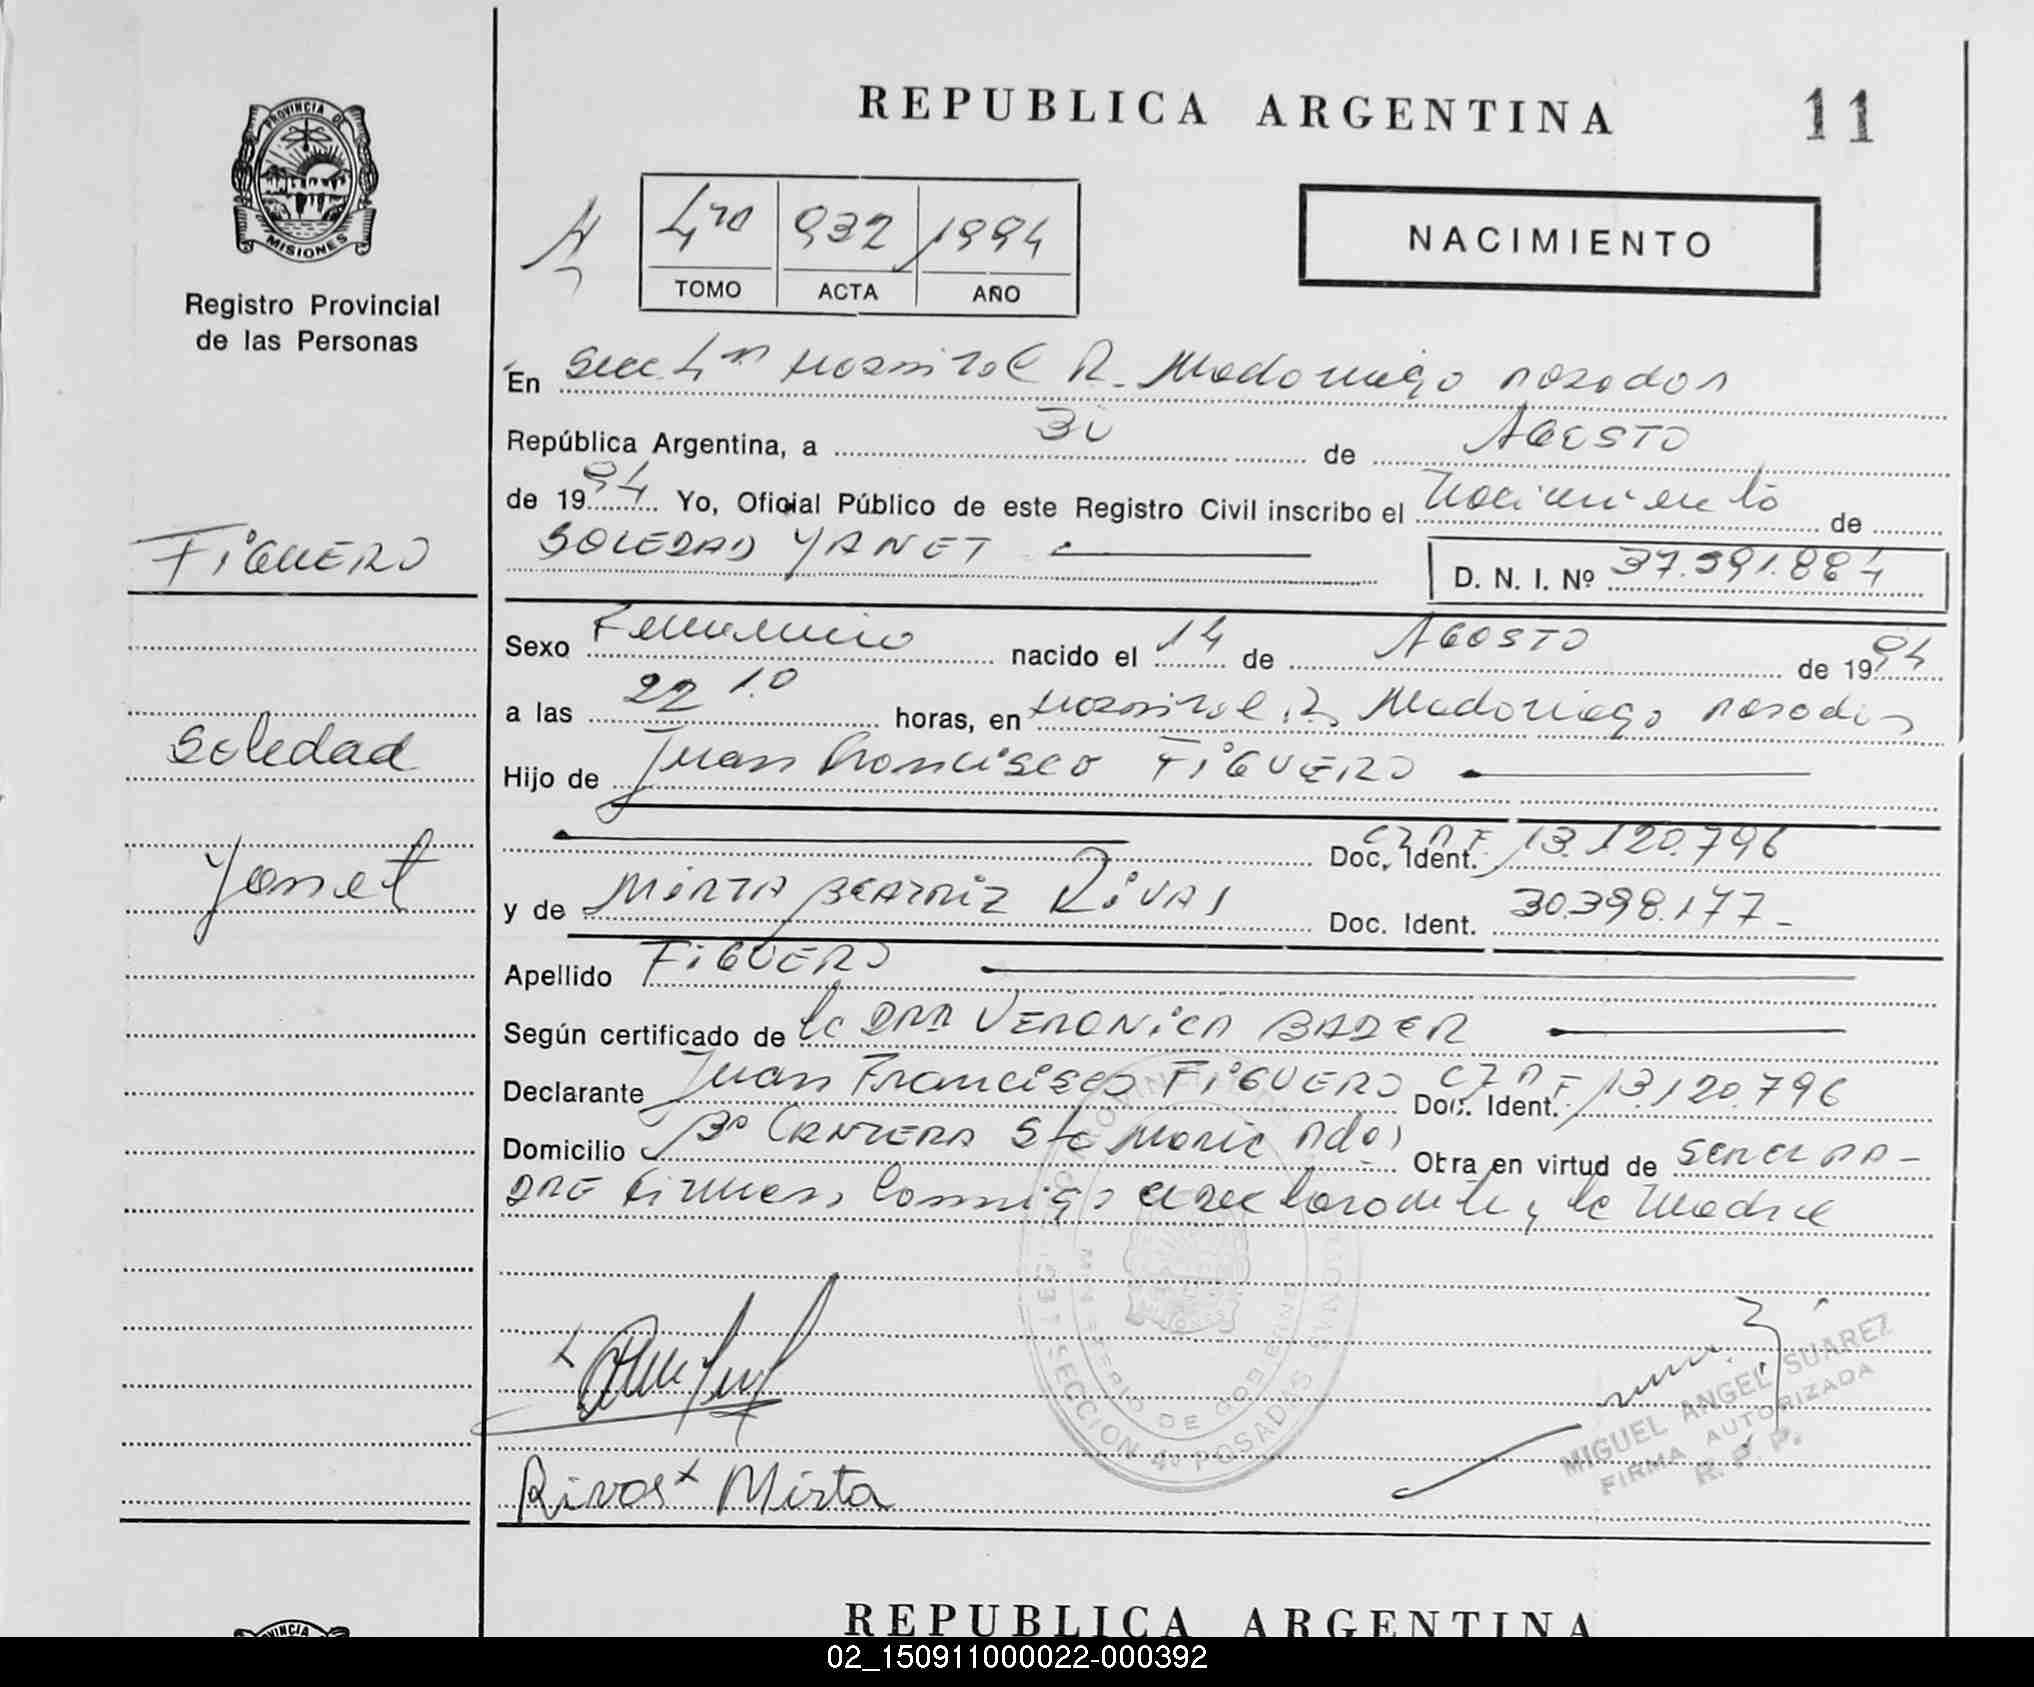 REPUBLICA ARGENTINA
11
PROVINCIA DE MISIONES
Registro Provincial
de las Personas
4ta 932 1994
TOMO ACTA AÑO
NACIMIENTO
En Secc 4ta Hospital R. Madariaga Posadas
República Argentina, a 30 de AGOSTO
de 1994 Yo, Oficial Público de este Registro Civil inscribo el Nacimiento de
SOLEDAD YANET D. N. I. Nº 37.591.884
FiGUERO
Soledad
Yanet
Sexo Femenino nacido el 14 de AGOSTO de 1994
a las 22 10 horas, en Hospital R. Madariaga Posadas
Hijo de Juan Francisco FiGUERO
Doc. Ident. 13.120.796
y de MiRTA BEATRiZ RiVAS Doc. Ident. 30.398.177-
Apellido FiGUERO
Según certificado de la DRA VERONiCA BADER
Declarante Juan Francisco FiGUERO Doc. Ident. 13.120.796
Domicilio Bº CANTERA Sta Maria Pdas Obra en virtud de SER EL PA-
DRE Firman Conmigo el declarante y la Madre
Rivas x Mirta
MIGUEL ANGEL SUAREZ
FIRMA AUTORIZADA
R. P. P.
SECCION 4a POSADAS
MINISTERIO DE GOBIERNO
REPUBLICA ARGENTINA
02_150911000022-000392